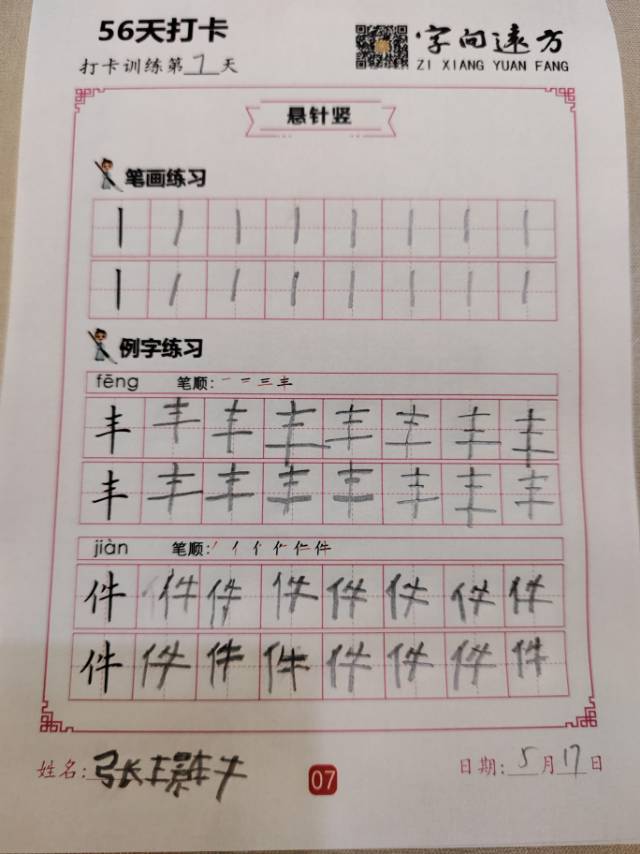 56天打卡
字向遠方
打卡训练第7天
ZI XIANG YUAN FANG
悬针竖
笔画练习
丨 丨 丨 丨 丨 丨 丨 丨
丨 丨 丨 丨 丨 丨 丨 丨
例字练习
fēng 笔顺: 一 二 三 丰
丰 丰 丰 丰 丰 丰 丰 丰
丰 丰 丰 丰 丰 丰 丰 丰
jiàn 笔顺: 丿 亻 亻 仁 件
件 件 件 件 件 件 件 件
件 件 件 件 件 件 件 件
姓名: 张
07
日期: 5月17日